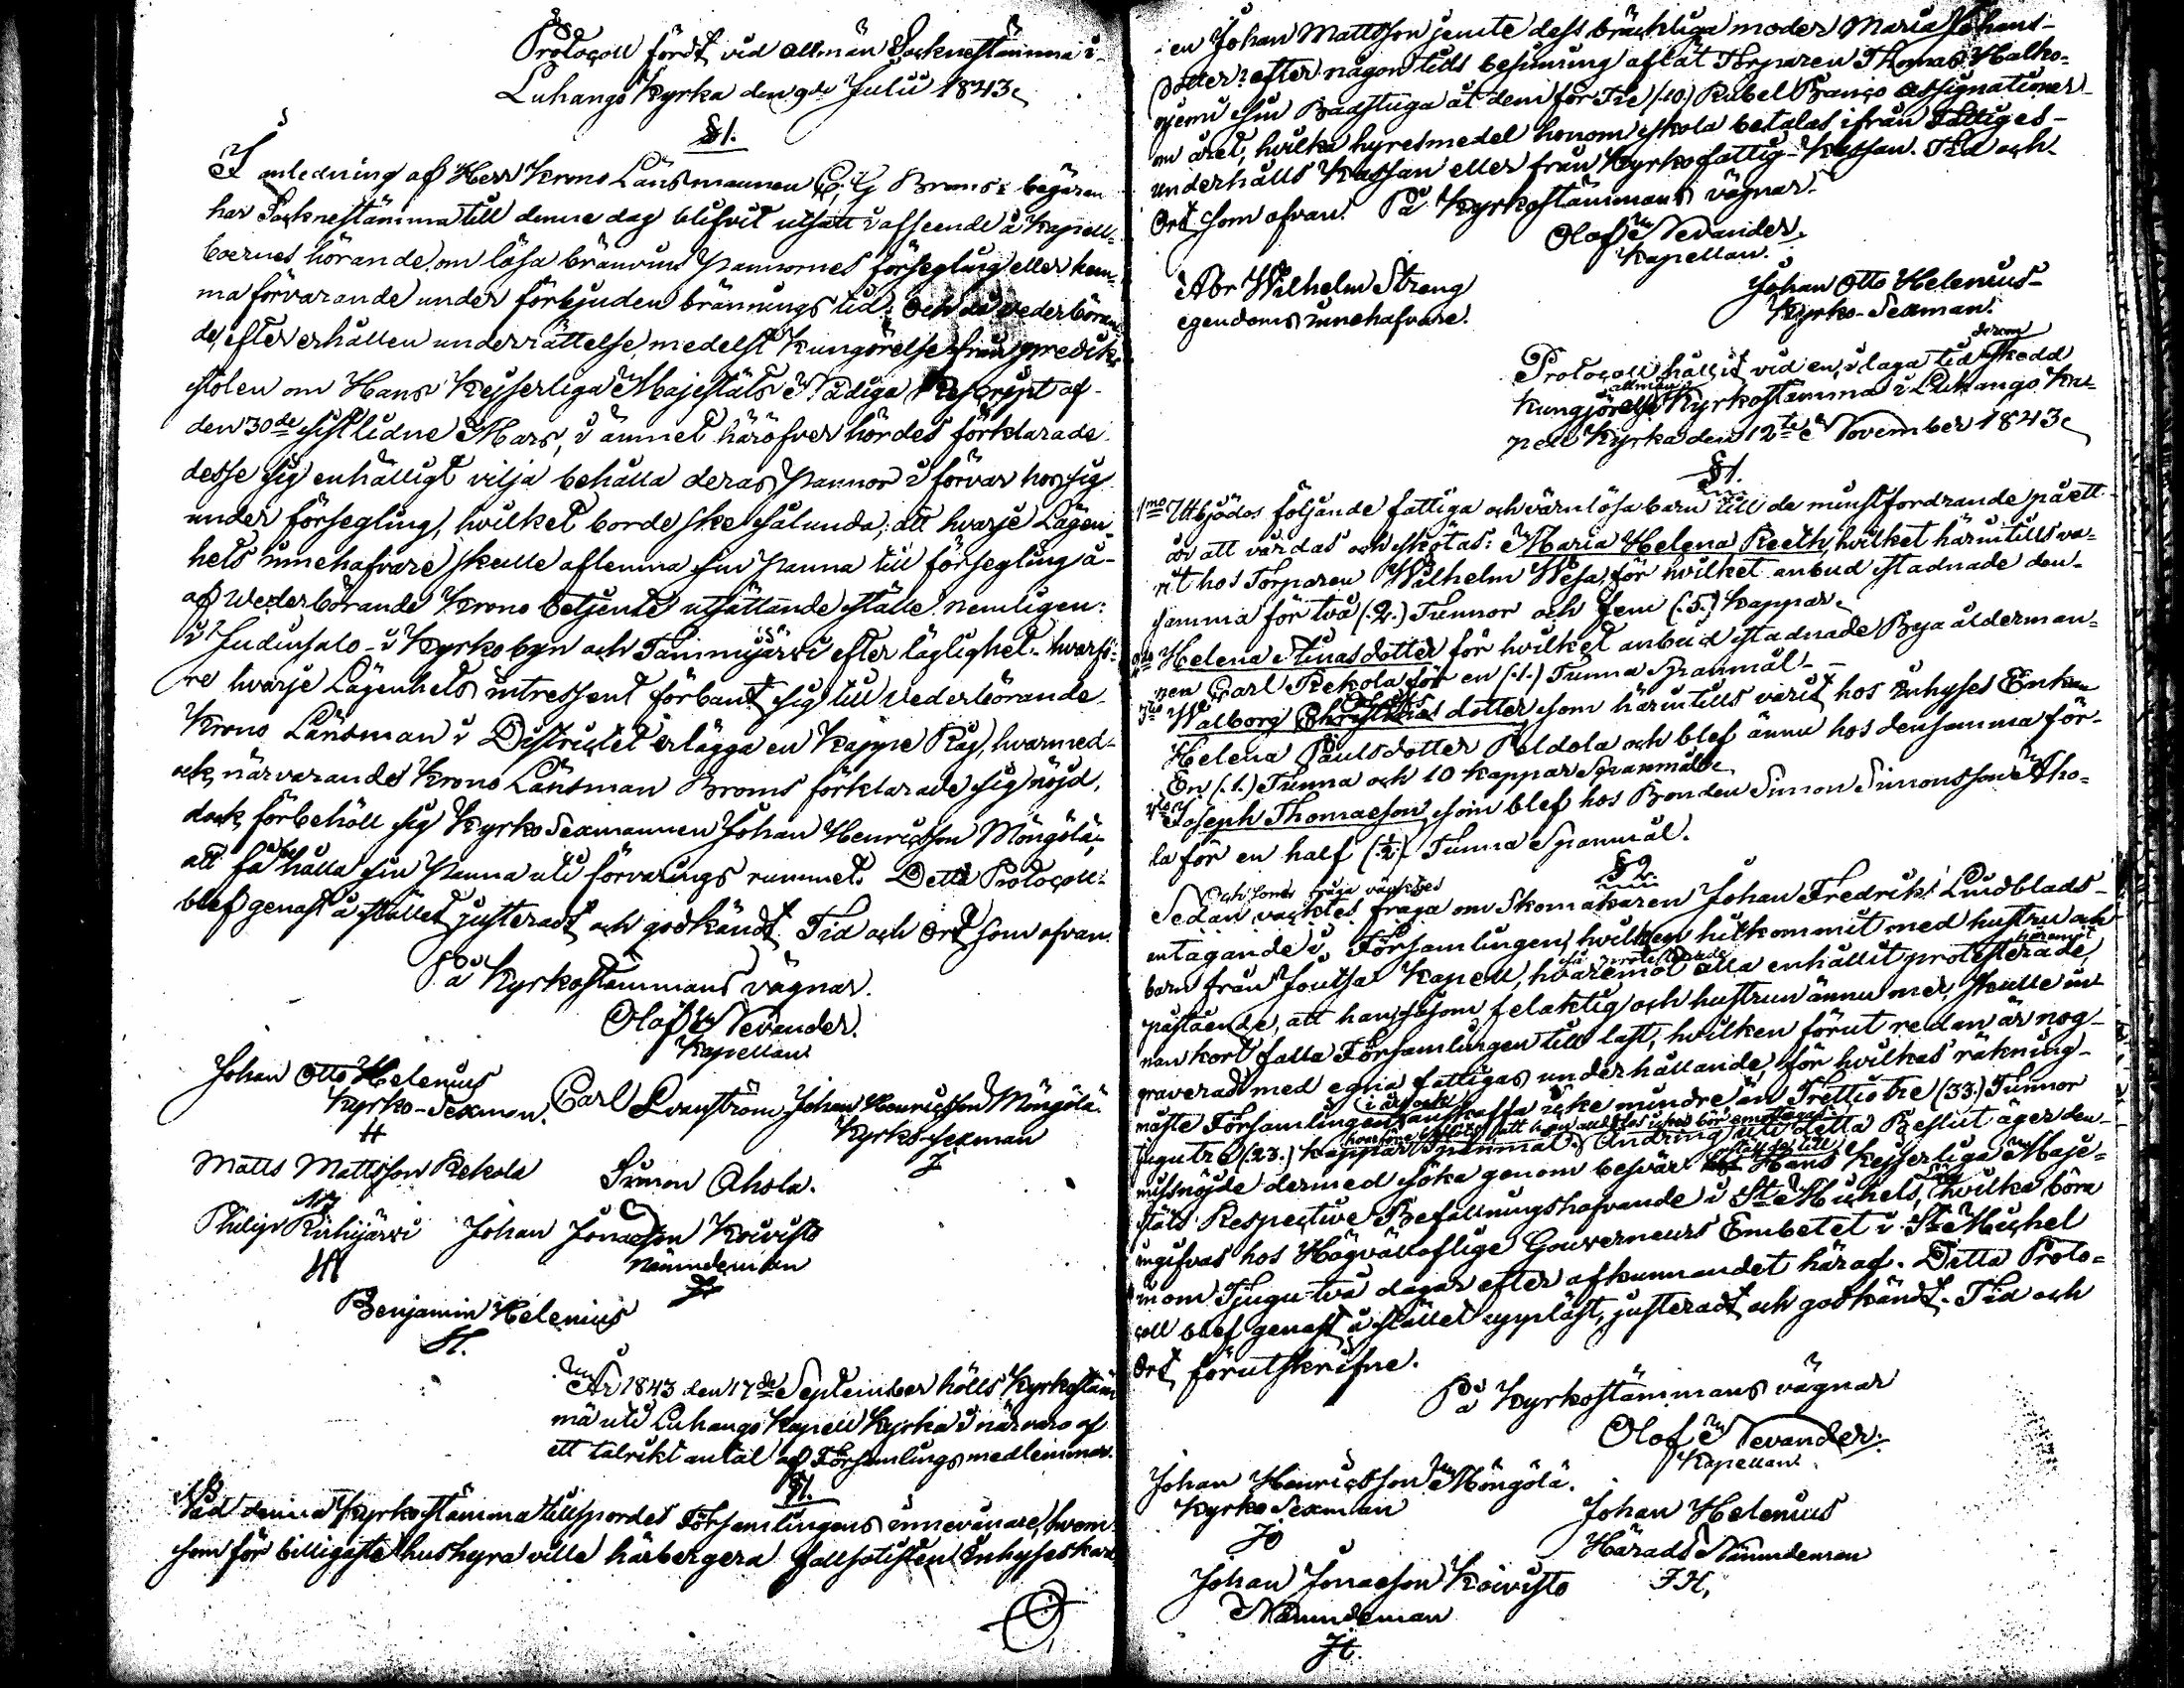 Protocoll fördt vid allmän Socknestämma i
Luhango Kyrka den 9de Julii 1843.
§1.
I anledning af Herr Krono Länsmannen C. G. Broms's begäran
har Socknestämma till denne dag blifvit utsatt i afseende å Kapell-
boernes hörande, om läsa bränvins pannornes försegling eller hem-
ma förvarande under förbjuden brännings tid; Och då vederböran-
de, efter erhållen underrättelse, medelst Kungörelse från predik-
stolen om Hans Kejserliga Majestäts Nådiga Rescript af
den 30de sistlidne Mars, i ämnet häröfver hördes, förklarade
desse sig enhälligt vilja behålla deras pannor i förvar hos sig
under försegling, hvilket borde ske sålunda; att hvarje Lägen-
hets innehafvare skulle aflemna sin panna till försegling å
af Wederbörande Krono betjente utsättande ställe, nemligen:
i Judinsalo - i Kyrkobyn och Tammijärvi efter läglighet - hvarfö-
re hvarje Lägenhets intressent förbant sig till vederbörande
Krono Länsman i Districtet erlägga en Kappe Råg, hvarmed
ock närvarande Krono Länsman Broms förklarade sig nöjd,
dock förbehöll sig Kyrko Sexmannen Johan Henricsson Möngölä,
att få behålla sin panna uti förvarings rummet. Detta Protocoll
blef genast å stället justeradt och godkändt. Tid och Ort som ofvan.
På Kyrkostämmans vägnar.
Olof Nevander.
Kapellan.
Johan Otto Helenius
Kyrko-Sexman.
Carl Qvanström
Johan Henricsson Möngölä.
Kyrko-Sexman
Matts Mattsson Rekola
Simon Ahola.
Philip Rihijärvi
Johan Jonaeson Koivisto
Nämndeman
Benjamin Helenius
År 1843 den 17de September hölls Kyrkostäm
ma uti Luhango Kapell Kyrka i närvaro af
ett talrikt antal af Församlings medlemmar.
§1.
Vid denna Kyrkostämma tillspordes Församlingens innevånare, hvem
som för billigaste hushyra ville härbergera fallsotisten Inhyses kar
en Johan Mattsson jemte dess bräckliga moder Maria Johans-
dotter: efter någon tids besinning aflät Torparen Thomas Halko-
njemi sin Baastuga åt dem för Tie (10.) Rubel Banco Assignationer
om året, hvilka hyresmedel honom skola betalas ifrån Fattiges-
underhålls Kassan eller från Kyrkofattig-Kassan. Tid och
Ort som ofvan. På Kyrkostämmans vägnar.
Olof Nevander.
Kapellan.
Abr Wilhelm Streng
egendoms innehafvare.
Johan Otto Helenius
Kyrko-Sexman.
Protocoll hållit vid en, i laga tid derom skedd
Kungjörelse allmän Kyrkostämma i Luhango Ka-
pell Kyrka den 12te November 1843.
§1.
1mo Utbjödos följande fattiga och värnlösa barn till de minstfordrande på ett
år att vårdas och skötas: Maria Helena Reeth, hvilket härintills va-
rit hos Torparen Wilhelm Wesa, för hvilket anbud stadnade den-
samma för två (2.) Tunnor och fem (5.) kappar.
2do Helena Stinas dotter för hvilket anbud stadnade Bya ålderman-
nen Carl Rekola för en (1.) Tunna Spannmål -
3tio Walborg dotter som härintills varit hos Inhyses Enkan
Helena Paulsdotter Peldola och blef ännu hos densamma för
En (1.) Tunna och 10 kappar Spannmål.
4to Joseph Thomaeson som blef hos Bonden Simon Simonsson Aho-
la för en half (½) Tunna Spannmål.
§2.
Sedan vacktes fråga om Skomakaren Johan Fredrik Lindblads
antagande i Församlingen, hvilken hitkommit med hustru och
barn från Joutsa Kapell, hvaremot alla enhälligt protesterade,
påstående, att han såsom felaktig och hustrun ännu mer, skulle in-
nan kort falla Församlingen till last, hvilken förut redan är nog
graverad med egna fattigas underhållande, för hvilkas räkning
måste Församlingen anskaffa icke mindre än Trettiotre (33.) Tunnor
tjugutre (23.) kappar Spannmål; Ändring uti detta Beslut äger den
missnöjde dermed söka genom besvär Hans Kejserliga Maje-
stäts Respective Befallningshafvande i St Michels, hvilka böra
ingifvas hos Högvällofliga Gouverneurs Embetet i St Michel
inom Tjugu-två dagar efter afkunnandet häraf. Detta Proto-
coll blef genast å stället uppläst, justeradt och godkändt. Tid och
Ort förutskrifne.
På Kyrkostämmans vägnar
Olof Nevander.
Kapellan.
Johan Henricsson Möngölä.
Kyrko Sexman
Johan Helenius
Härads Nämndeman
J H,
Johan Jonaeson Koivisto
Nämndeman